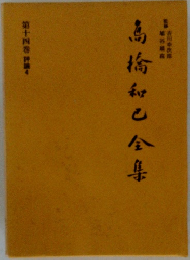 監修 吉川幸次郎
埴谷雄高
高橋和巳全集
第十四巻 評論4